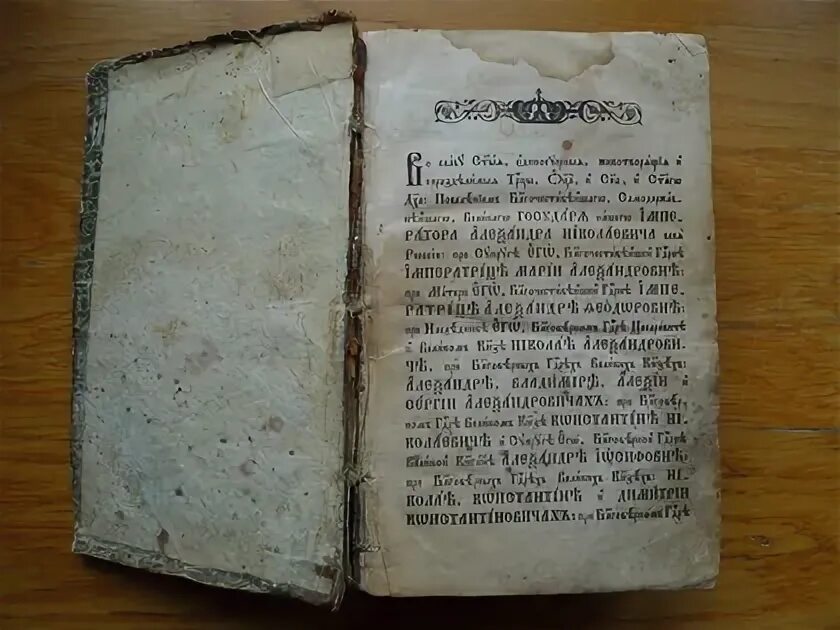 Во славу Стыѧ, единосущныѧ, животворѧщіѧ и
нераздѣлимыѧ Трⷪ҇цы, Оц҃а, и Сн҃а, и Ст҃агѡ
Дх҃а: Повелѣніемъ Бл҃гочестивѣйшагѡ, Самодержав-
нѣйшагѡ, Великагѡ ГОСУДАРѦ нашегѡ ІМПЕ-
РАТОРА АЛЕѮАНДРА НІКОЛАЕВИЧА всеѧ
Россіи: при Супругѣ ЕГѠ, Бл҃гочестивѣйшей Гдⷭ҇рнѣ
ІМПЕРАТРИЦѢ МАРІИ АЛЕѮАНДРОВНѢ:
при Матери ЕГѠ, Бл҃гочестивѣйшей Гдⷭ҇рнѣ ІМПЕ-
РАТРИЦѢ АЛЕѮАНДРѢ ѲЕОДѠРОВНѢ:
при Наслѣдникѣ ЕГѠ, Бл҃говѣрномъ Гдⷭ҇рѣ Цесаревичѣ
и Великомъ Кнѧзѣ НІКОЛАѢ АЛЕѮАНДРОВИ-
ЧѢ, при Бл҃говѣрныхъ Гдⷭ҇рехъ Великихъ Кнѧзехъ:
АЛЕѮАНДРѢ, ВЛАДИМІРѢ, АЛЕѮІИ и
СЕРГІИ АЛЕѮАНДРОВИЧАХЪ: при Бл҃говѣр-
номъ Гдⷭ҇рѣ Великомъ Кнѧзѣ КѠНСТАНТІНѢ НІ-
КОЛАЕВИЧѢ и Супругѣ Егѡ, Бл҃говѣрной Гдⷭ҇рнѣ
Великой Кнѧгинѣ АЛЕѮАНДРѢ ІѠСИФОВНѢ:
при Бл҃говѣрныхъ Гдⷭ҇рехъ Великихъ Кнѧзехъ: НІ-
КОЛАѢ, КѠНСТАНТІНѢ и ДИМИТРІИ
КѠНСТАНТІНОВИЧАХЪ: при Бл҃говѣрномъ Гдⷭ҇рѣ